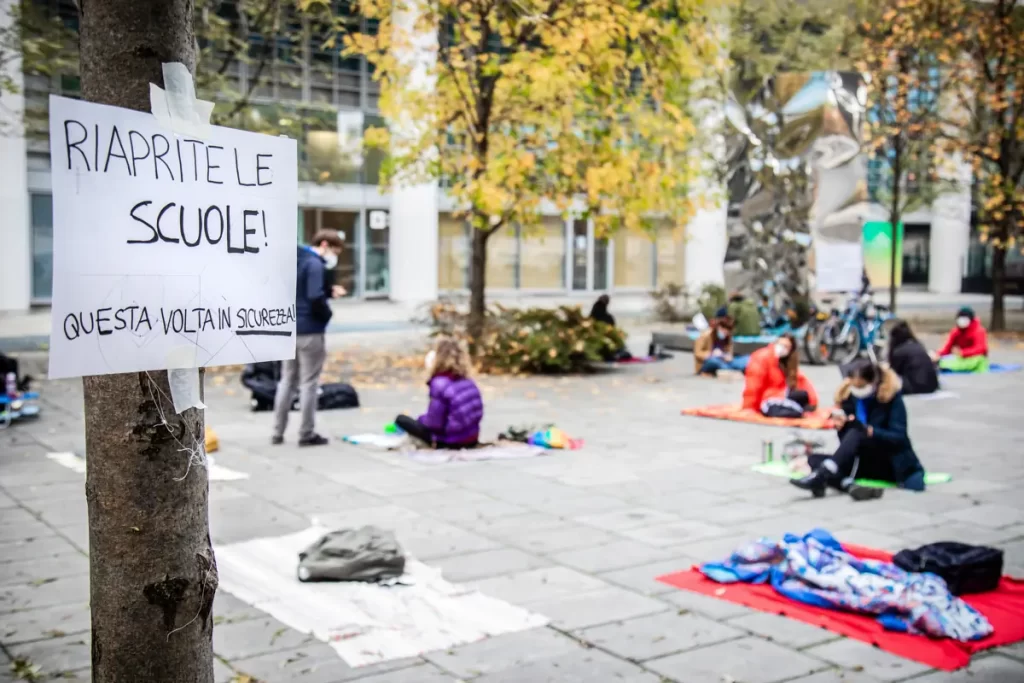 RIAPRITE LE
SCUOLE!
QUESTA VOLTA IN SICUREZZA!